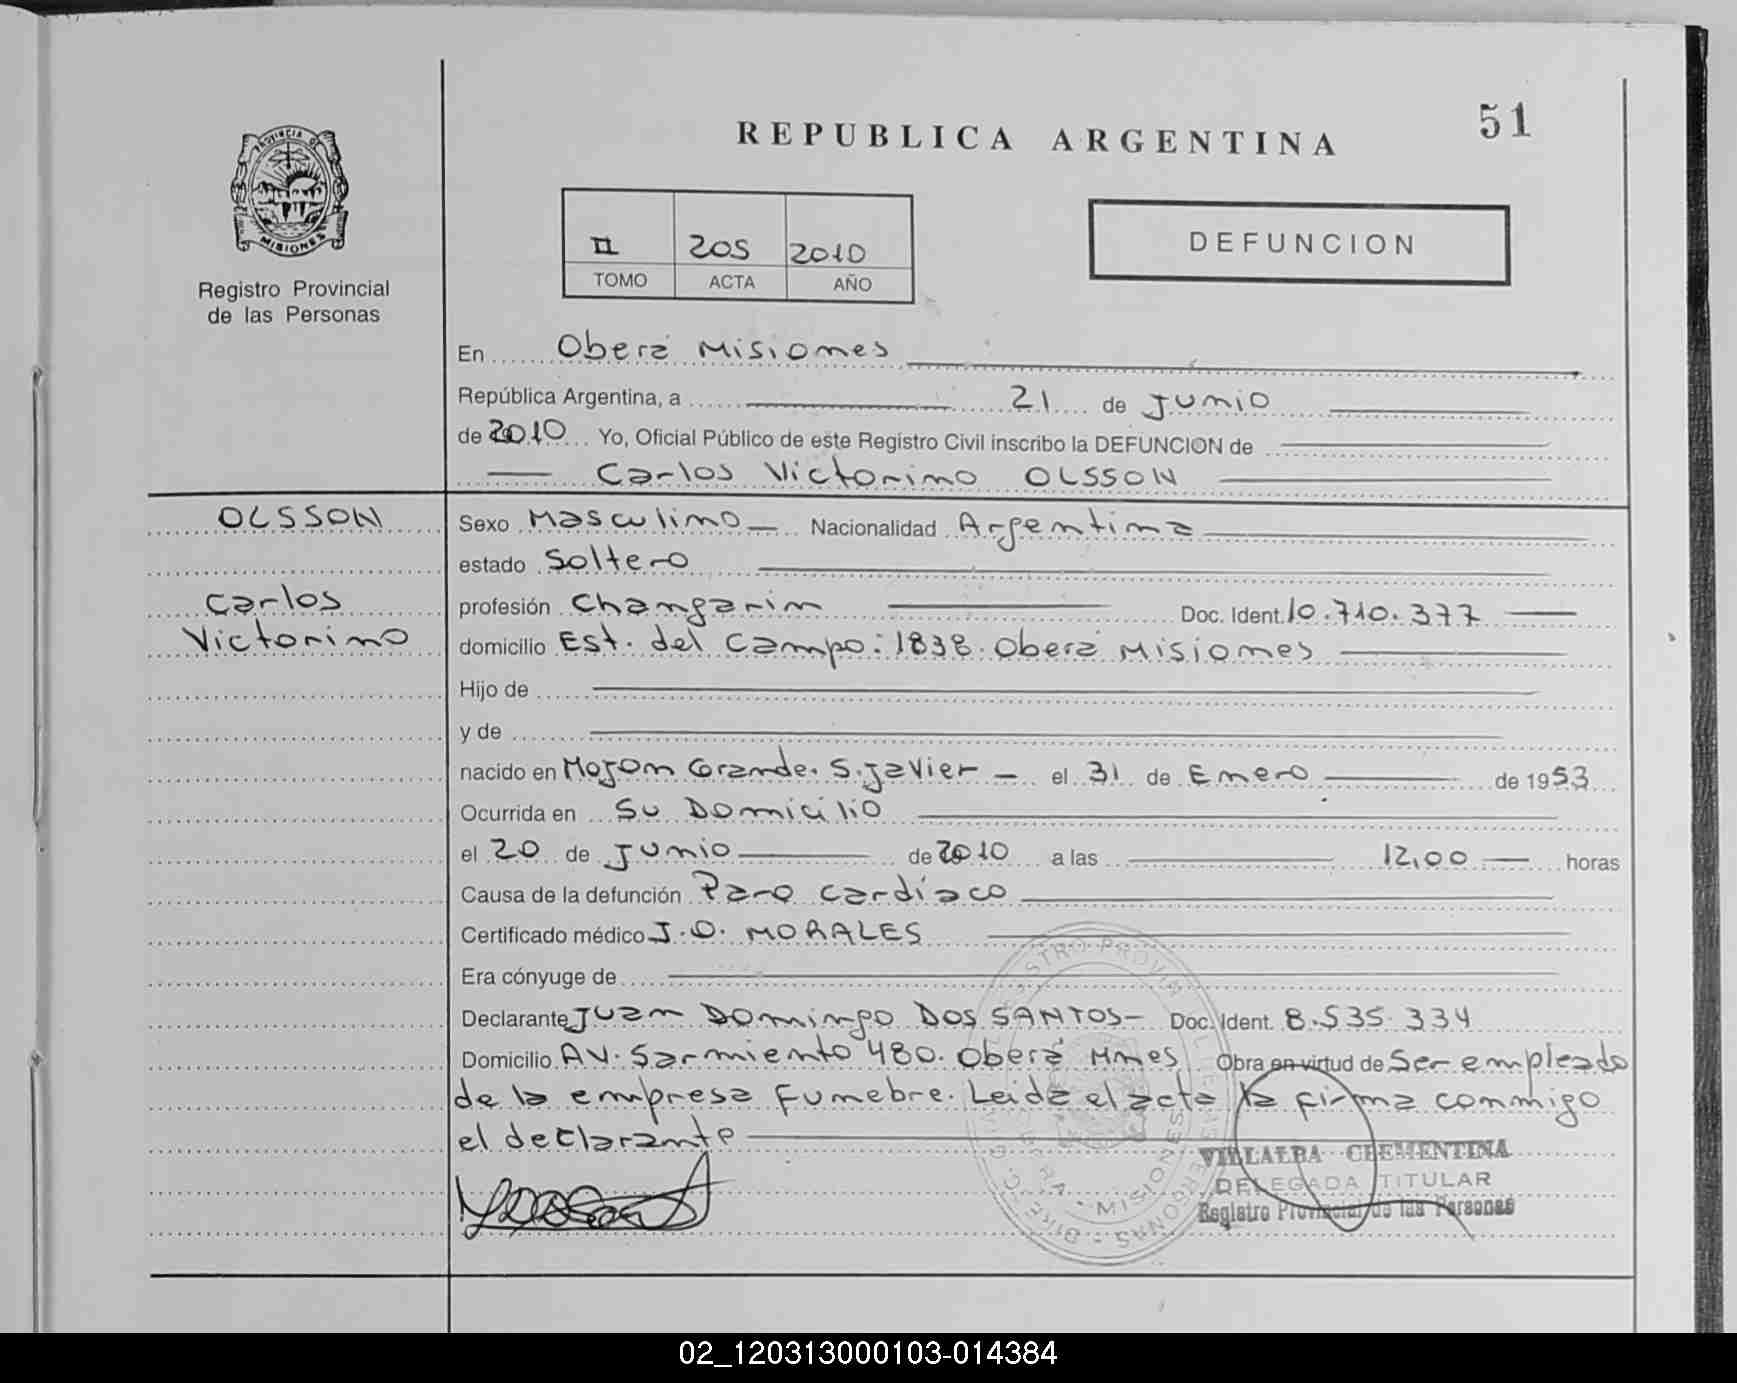 51
REPUBLICA ARGENTINA
PROVINCIA DE
MISIONES
Registro Provincial
de las Personas
II 205 2010
TOMO ACTA AÑO
DEFUNCION
En Oberá Misiones
República Argentina, a 21 de Junio
de 2010 Yo, Oficial Público de este Registro Civil inscribo la DEFUNCION de
Carlos Victorino OLSSON
OLSSON
Carlos
Victorino
Sexo Masculino Nacionalidad Argentina
estado Soltero
profesión Changarin Doc. Ident. 10.710.377
domicilio Est. del Campo: 1838. Oberá Misiones
Hijo de
y de
nacido en Mojon Grande. S. Javier el 31 de Enero de 1953
Ocurrida en Su Domicilio
el 20 de Junio de 2010 a las 12,00 horas
Causa de la defunción Paro cardíaco
Certificado médico J.O. MORALES
Era cónyuge de
Declarante Juan Domingo DOS SANTOS Doc. Ident. 8.535.334
Domicilio AV. Sarmiento 480. Oberá Mnes Obra en virtud de Ser empleado
de la empresa Funebre. Leida el acta la firma conmigo
el declarante
VILLALBA CLEMENTINA
DELEGADA TITULAR
Registro Provincial de las Personas
02_120313000103-014384